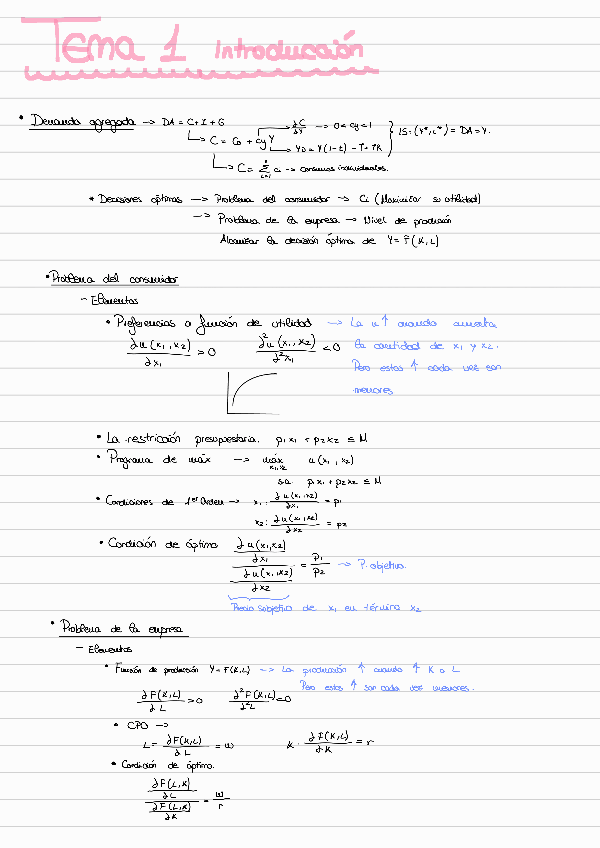 Tema 1 Introducción
• Demanda agregada → DA = C + I + G
↳ C = C₀ + cy Y → ∂C/∂Y → 0 < cy < 1
→ YD = Y(1-t) - T + TR
IS: (Y*, r*) = DA = Y.
↳ C = Σ ci → consumos individuales.
* Decisiones óptimas → Problema del consumidor → Ci (Maximizar su utilidad)
→ Problema de la empresa → Nivel de producción
Alcanzar la decisión óptima de Y = F(K, L)
• Problema del consumidor
- Elementos
• Preferencias o función de utilidad → La u ↑ cuando aumenta
la cantidad de x₁ y x₂.
Pero estos ↑ cada vez son
menores
∂u(x₁, x₂)/∂x₁ > 0   ∂²u(x₁, x₂)/∂²x₁ < 0
• La restricción presupuestaria. p₁x₁ + p₂x₂ ≤ M
• Programa de máx → máx x₁,x₂ u(x₁, x₂)
s.a. p₁x₁ + p₂x₂ ≤ M
• Condiciones de 1er Orden → x₁: ∂u(x₁,x₂)/∂x₁ = p₁
x₂: ∂u(x₁,x₂)/∂x₂ = p₂
• Condición de óptimo (∂u(x₁,x₂)/∂x₁)/(∂u(x₁,x₂)/∂x₂) = p₁/p₂ → P. objetivo.
Precio subjetivo de x₁ en término x₂
• Problema de la empresa
- Elementos
• Función de producción Y = F(K,L) → La producción ↑ cuando ↑ K o L
Pero estos ↑ son cada vez menores.
∂F(K,L)/∂L > 0   ∂²F(K,L)/∂²L < 0
• CPO →
L = ∂F(K,L)/∂L = w   K · ∂F(K,L)/∂K = r
• Condición de óptimo.
(∂F(L,K)/∂L)/(∂F(L,K)/∂K) = w/r